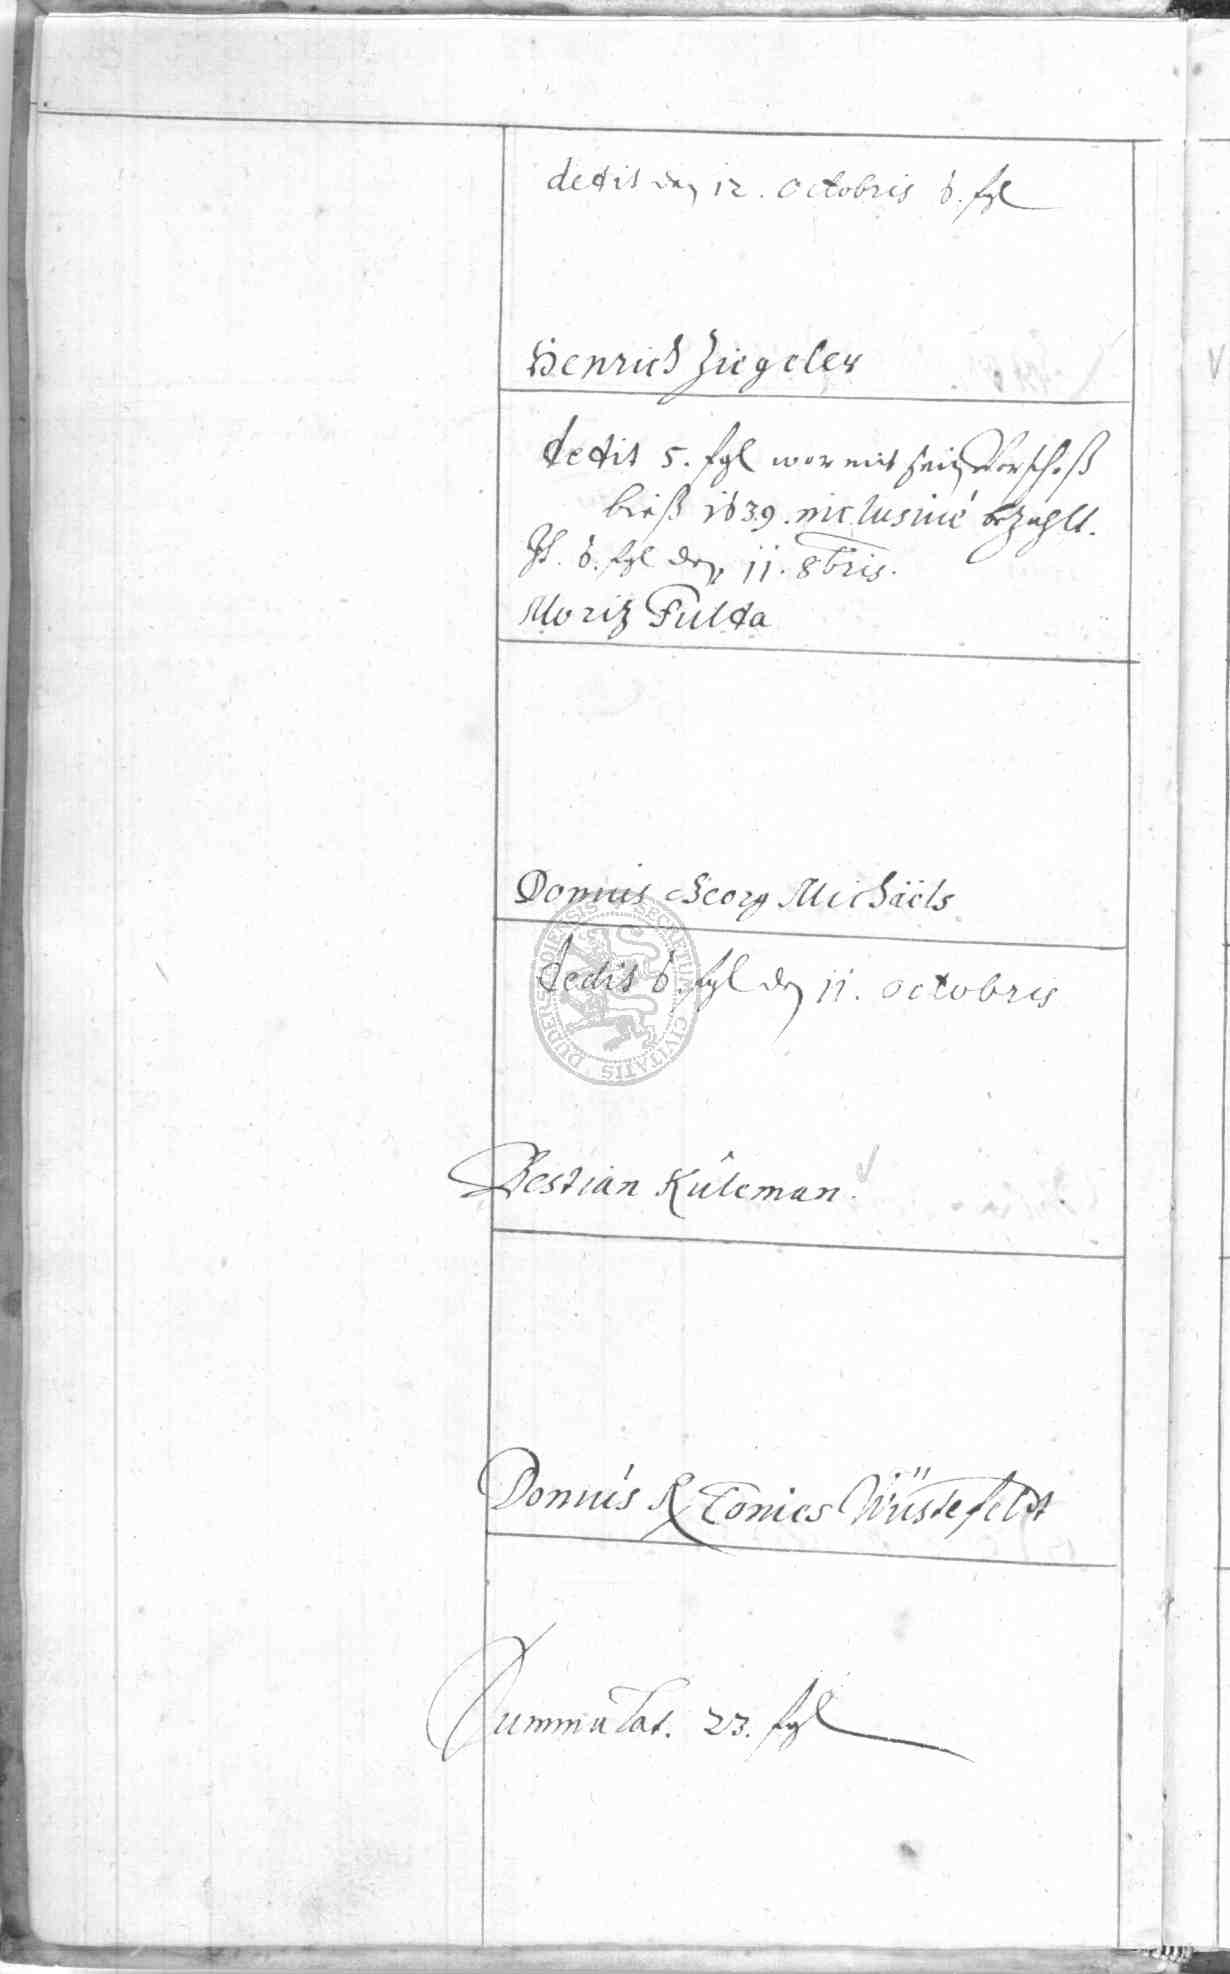 dedit den 12. octobris 6. fgl
Henrich Ziegeler
dedit 5. fgl wormit sein Vorschoß
bieß 1639. inclusiué bezahlt.
It. 6. fgl den 11. 8bris.
Moritz Fulda
Domus Georg Michaëls
dedit 6. fgl den 11. octobris
Bestian Kûleman.
Domús Tonies Wüstefeldt
Summa Lat. 23. fgl
SECRETUM CIVITATIS DUDERSTODIENSIS